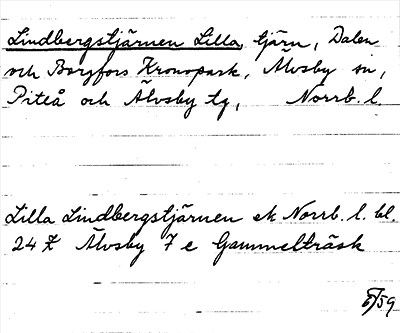 Lindbergstjärnen Lilla, tjärn, Dalen
och Borgfors Kronopark, Älvsby sn,
Piteå och Älvsby tg, Norrb. l.
Lilla Lindbergstjärnen ek Norrb. l. bl.
24 Z Älvsby 7 e Gammelträsk
/59